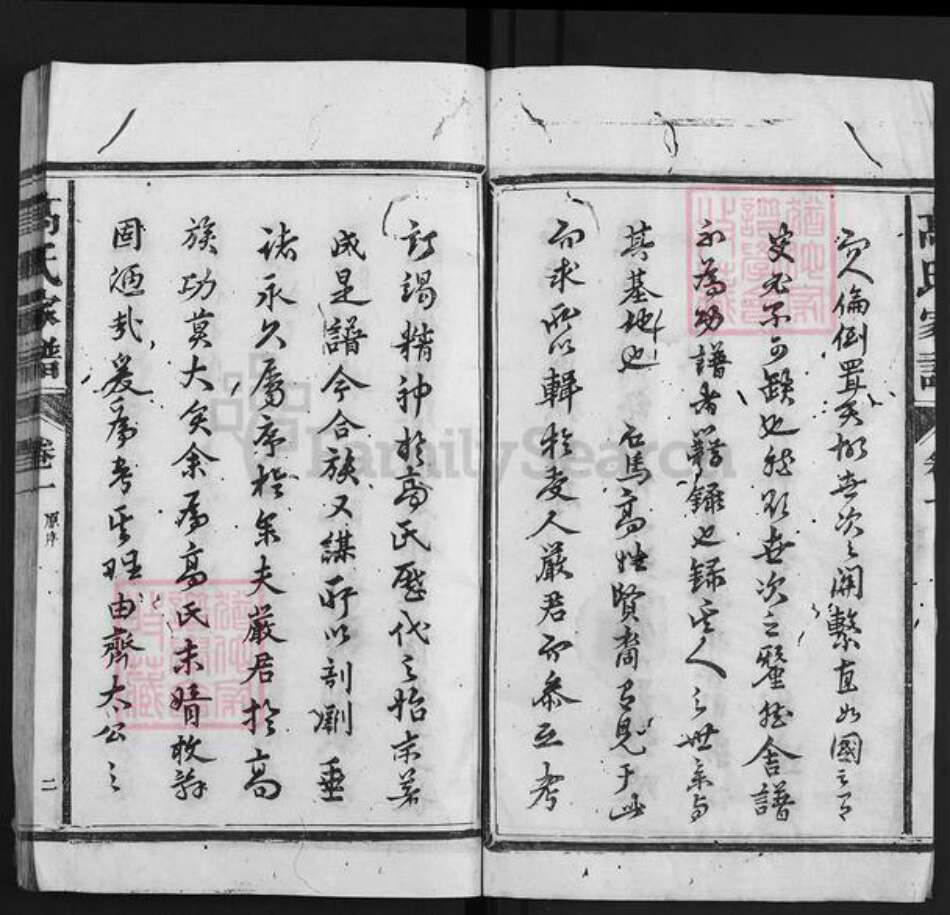 而人倫倒置矣故世次之關繫直如國之有
史必不可缺也然則世次之釐然舍譜
不為功譜者籍錄也錄其人之世系與
其基地也石馬高姓賢裔有見于此
而求所以輯於友人嚴君而參互考
訂竭精神於高氏歷代之始末著
成是譜今合族又謀所以剖劂垂
諸永久屬序於余夫嚴君於高
族功莫大矣余為高氏未婿敢辭
固陋哉爰為考其理由齊太公之
高氏家譜
卷一
原序
二
高氏家譜
FamilySearch